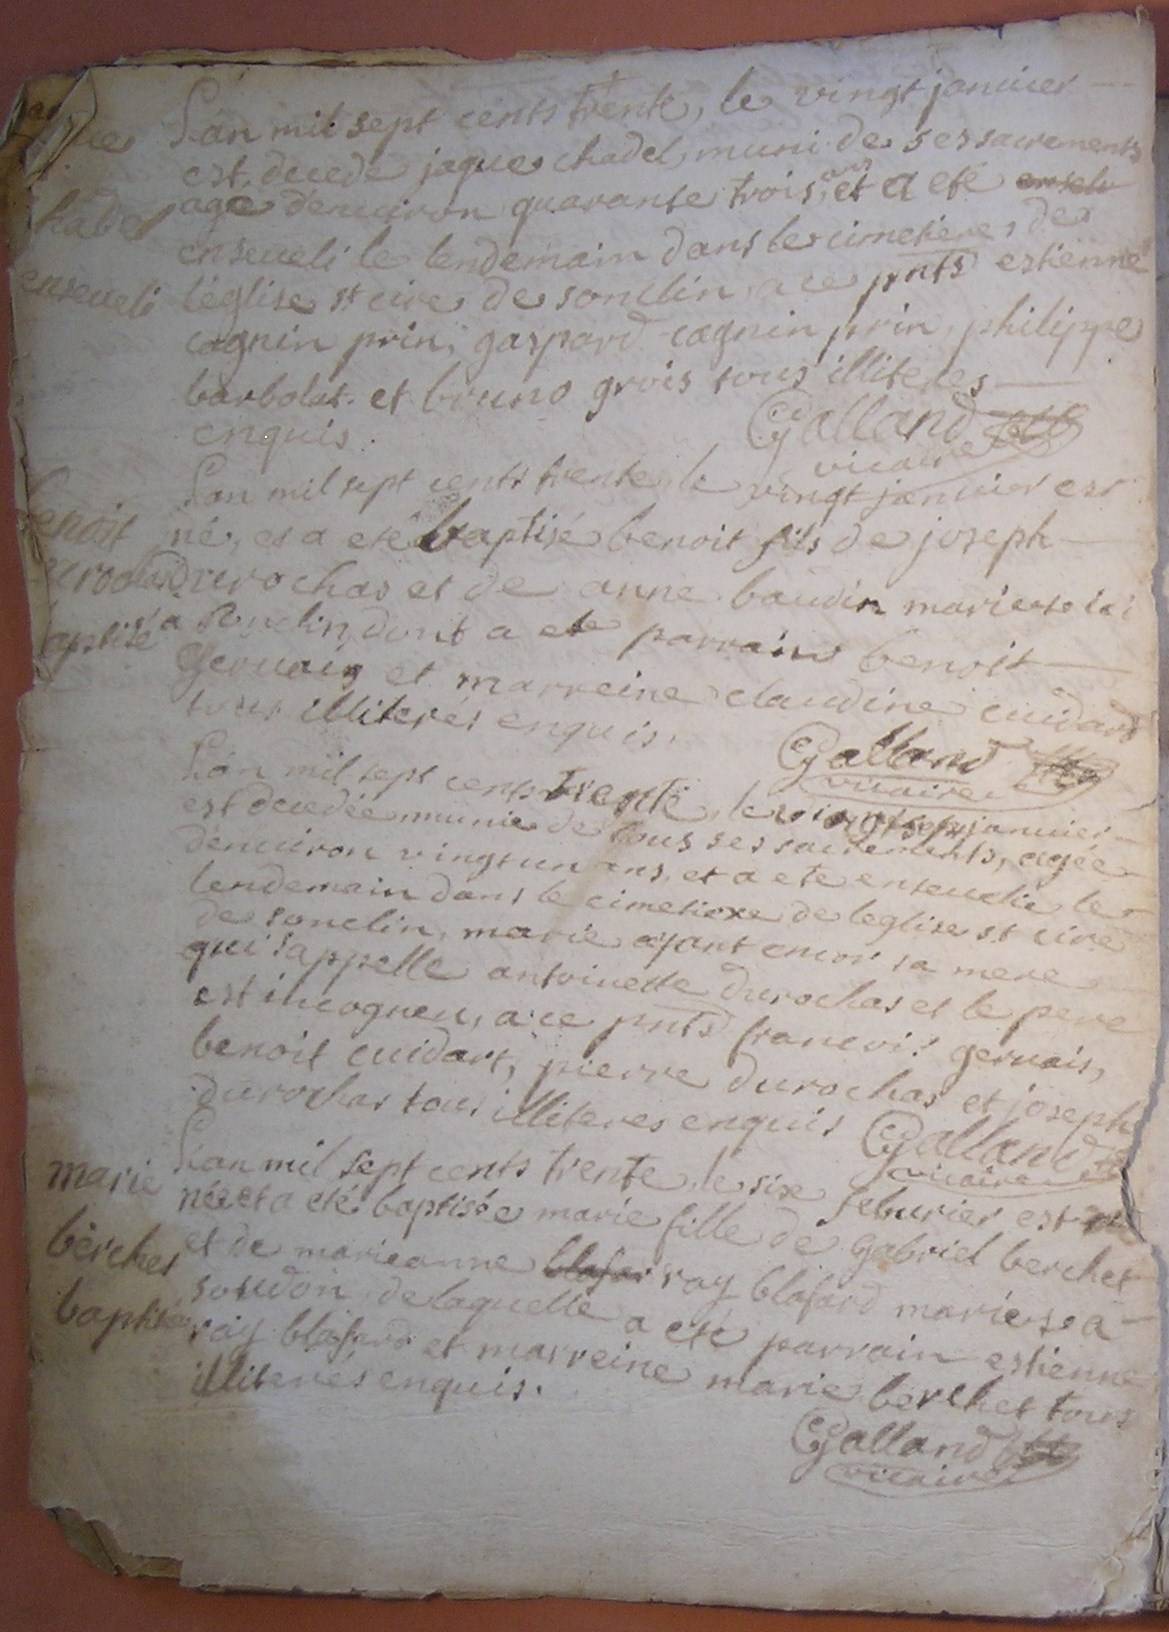 L'an mil sept cents trente, le vingt janvier
est decedé jaque chadel, muni de ses sacrements
agé d'enuiron quarante trois ans et a eté
enseueli le lendemain dans le cimetiere de
l'eglise st cire de sonclin, a ce pnts estienne
cagnin prin, gaspard cagnin prin, philippe
barbolat et bruno grois tous illiteres
enquis.
Galland
vicaire
chadel
enseueli
L'an mil sept cents trente le vingt janvier est
né, et a eté baptisé benoit fils de joseph
durochas et de anne baudin mariés
a Sonclin, dont a eté parrain benoit
Geruais et marreine claudine cuidard
tous illiterés enquis.
Galland
vicaire
benoit
durochas
baptisé
L'an mil sept cents trente, le januier
est decedée munie de tous ses sacrements, agée
d'enuiron vingt un ans, et a eté enseuelie le
lendemain dans le cimetiere de leglise st cire
de sonclin, marie ayant encor sa mere
qui s'appelle antoinette durochas et le pere
est incogneu, a ce pnts francois geruais,
benoit cuidart, pierre durochas et joseph
durochas tous illiteres enquis
Galland
vicaire
L'an mil sept cents trente, le six feburier est
née et a eté baptisée marie fille de Gabriel berchet
et de marieanne ray blafard mariés a
soudon, delaquelle a eté parrain estienne
ray blafard et marreine marie berchet tous
illiterés enquis.
Galland
vicaire
marie
berchet
baptisée